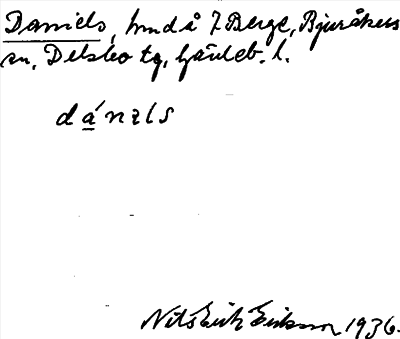 Daniels, hmd å 7 Berge, Bjuråkers
sn, Delsbo tg, Gävleb. l.
dánzls
Nils Erik Eriksson 1936.